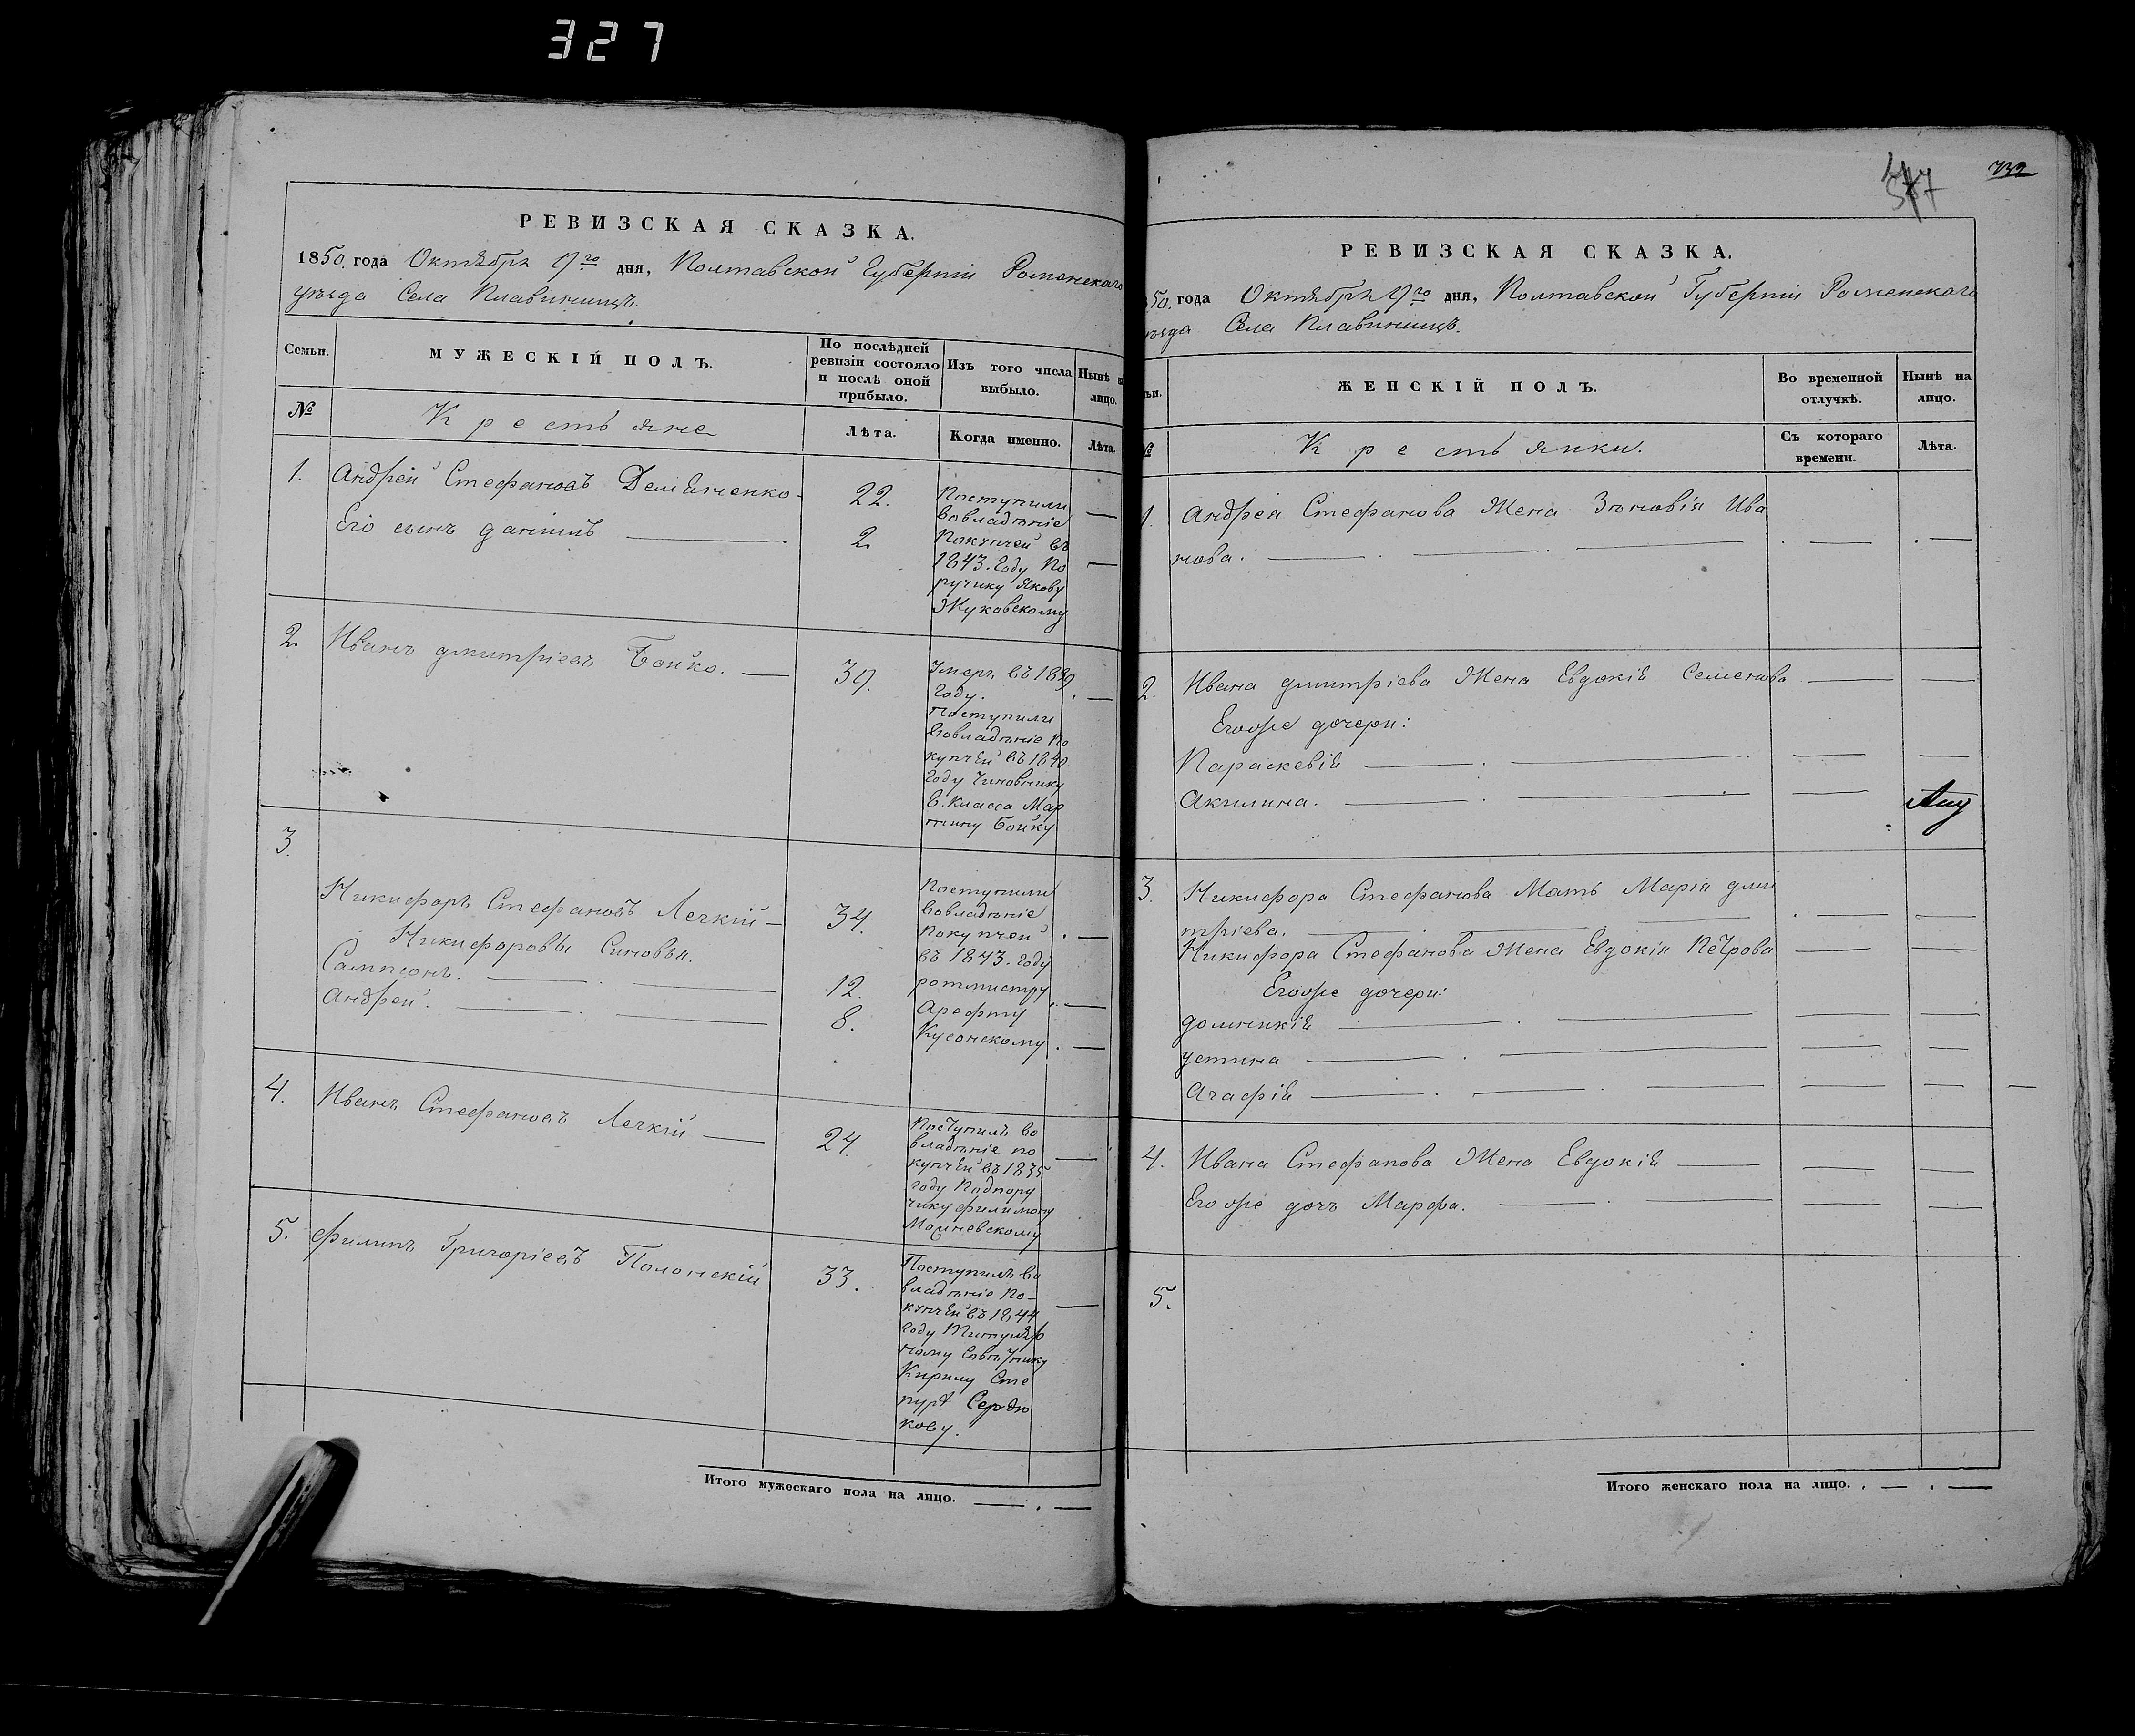 327
РЕВИЗСКАЯ СКАЗКА.
1850 года Октября дня, Полтавской Губерніи Роменскаго
уѣзда Села Плавинищъ.
Семьи. МУЖЕСКІЙ ПОЛЪ. По послѣдней ревизіи состояло и послѣ оной прибыло. Изъ того числа выбыло. Нынѣ на лицо.
№ Крестьяне Лѣта. Когда именно. Лѣта.
1. Андрей Стефановъ Демьяненко 22. Поступили
вовладѣніе
Его сынъ данiилъ 2. Покупчей въ
1843. Году По
ручику Якову
Жуковскому
2. Иванъ дмитріевъ Бойко. 39. Умеръ въ 1839
Году.
Поступили
Вовладѣніе По
купчей въ 1840
Году Чиновнику
Класса Мар
тину Бойку
3. Никифоръ Стефановъ Легкій 34. Поступили
вовладѣніе
Никифоровы Сыновья. Покупчей
въ 1843. году
Сампсонъ. 12. ротмистру
Андрей. 8. Арефту
Кусонскому
4. Иванъ Стефановъ Легкій 24. Поступилъ во
владѣніе по
купчей въ 1835
году Подпору
чику филимону
5. филипъ Григоріевъ Полонскій 33. Поступилъ во
владѣніе По-
купчей въ 1844
Году Титуляр
ному Совѣтнику
Кирилу Сте
пуре Сердю
кову.
Итого мужескаго пола на лицо.
732
РЕВИЗСКАЯ СКАЗКА.
850. года Октября дня, Полтавской Губерніи Роменскаго
уѣзда Села Плавинищъ.
ьи. ЖЕНСКІЙ ПОЛЪ. Во временной отлучкѣ. Нынѣ на лицо.
№ Крестьянки. Съ котораго времени. Лѣта.
1. Андрея Стефанова Жена Зѣновія Ива
нова.
2. Ивана дмитріева Жена Евдокія Семенова
Егоже дочери:
Параскевія
Акилина.
3. Никифора Стефанова Мать Марія дми
тріева.
Никифора Стефанова Жена Евдокія Петрова
Егоже дочери:
доминикія
устина
Агафія
4. Ивана Стефанова Жена Евдокія
Егоже дочь Марфа.
5.
Итого женскаго пола на лицо.